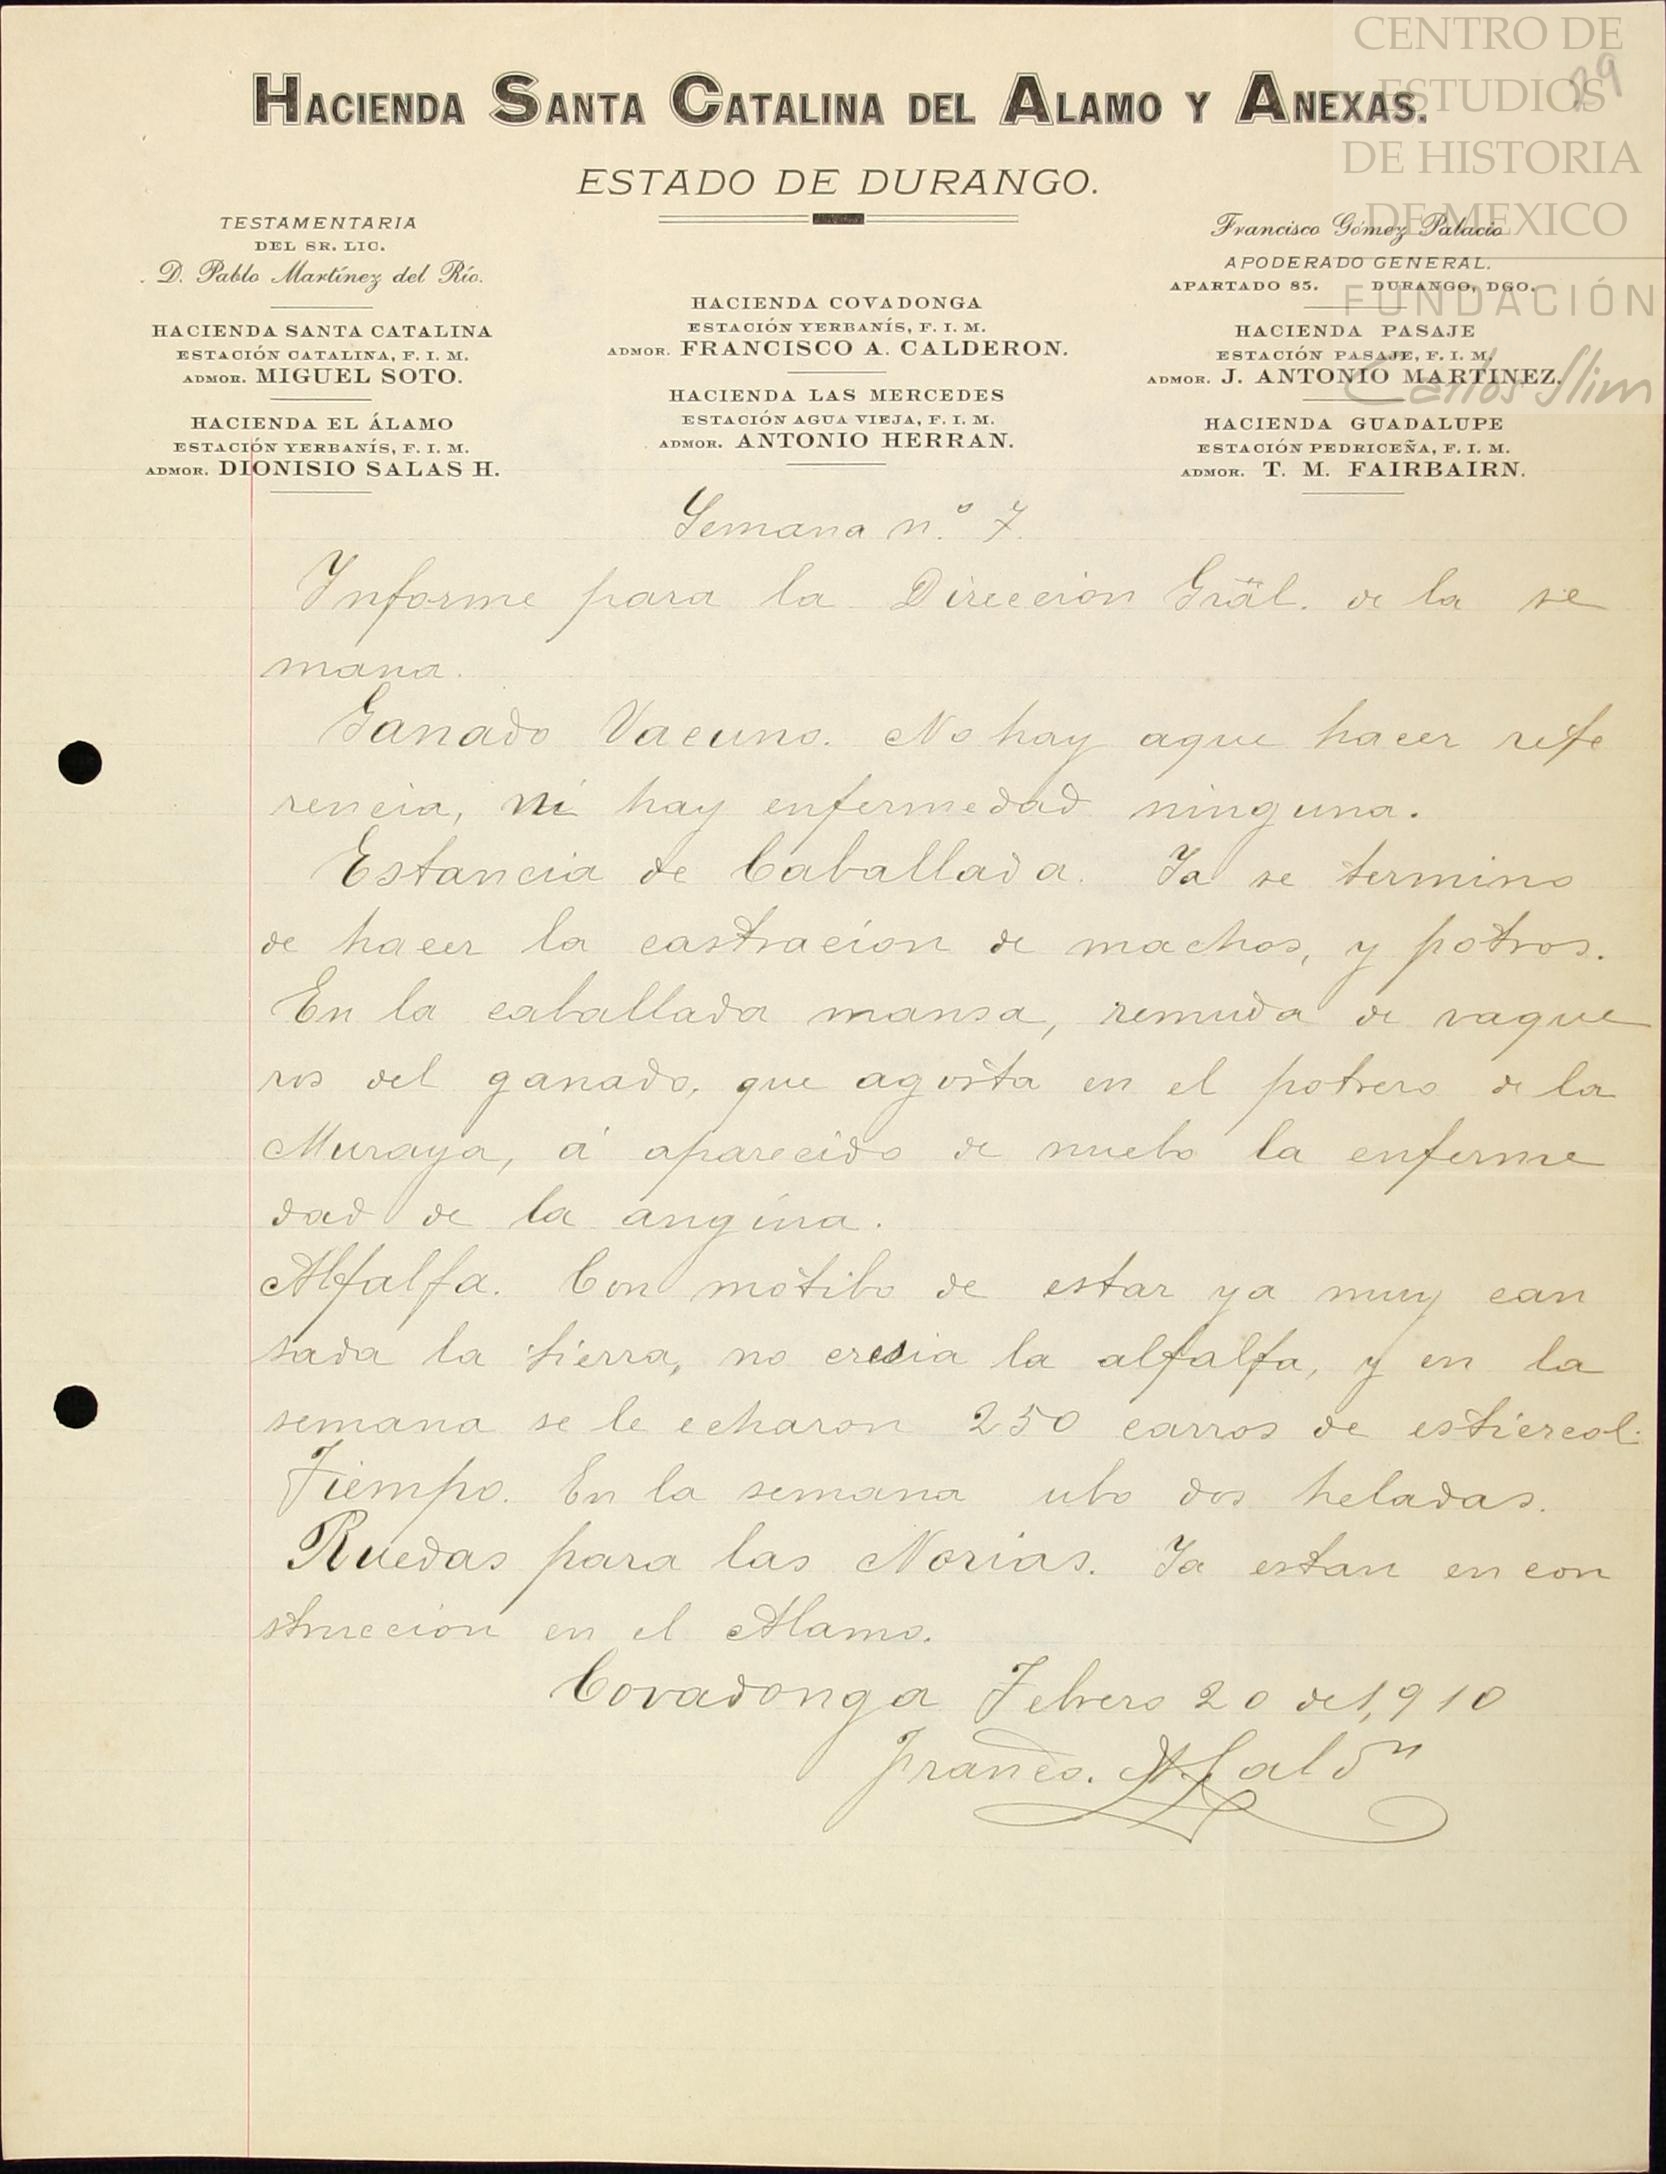 CENTRO DE
ESTUDIOS
DE HISTORIA
DE MEXICO
FUNDACIÓN
Carlos Slim
29
HACIENDA SANTA CATALINA DEL ALAMO Y ANEXAS.
ESTADO DE DURANGO.
TESTAMENTARIA
DEL SR. LIC.
D. Pablo Martínez del Río.
HACIENDA SANTA CATALINA
ESTACIÓN CATALINA, F. I. M.
ADMOR. MIGUEL SOTO.
HACIENDA EL ÁLAMO
ESTACIÓN YERBANÍS, F. I. M.
ADMOR. DIONISIO SALAS H.
HACIENDA COVADONGA
ESTACIÓN YERBANÍS, F. I. M.
ADMOR. FRANCISCO A. CALDERON.
HACIENDA LAS MERCEDES
ESTACIÓN AGUA VIEJA, F. I. M.
ADMOR. ANTONIO HERRAN.
Francisco Gómez Palacio
APODERADO GENERAL.
APARTADO 85. DURANGO, DGO.
HACIENDA PASAJE
ESTACIÓN PASAJE, F. I. M.
ADMOR. J. ANTONIO MARTINEZ.
HACIENDA GUADALUPE
ESTACIÓN PEDRICEÑA, F. I. M.
ADMOR. T. M. FAIRBAIRN.
Semana n.º 7.
Informe para la Direccion Gräl. de la se
mana.
Ganado Vacuno. No hay aque hacer refe
rencia, ni hay enfermedad ninguna.
Estancia de Caballada. Ya se termino
de hacer la castracion de machos, y potros.
En la caballada mansa, remuda de vaque
ros del ganado, que agosta en el potrero de la
Muraya, á aparecido de nuebo la enferme
dad de la angina.
Alfalfa. Con motibo de estar ya muy can
sada la tierra, no cresia la alfalfa, y en la
semana se le echaron 250 carros de estiercol.
Tiempo. En la semana ubo dos heladas.
Ruedas para las Norias. Ya estan en con
struccion en el Alamo.
Covadonga Febrero 20 de 1,910
Franco. A. Caldn